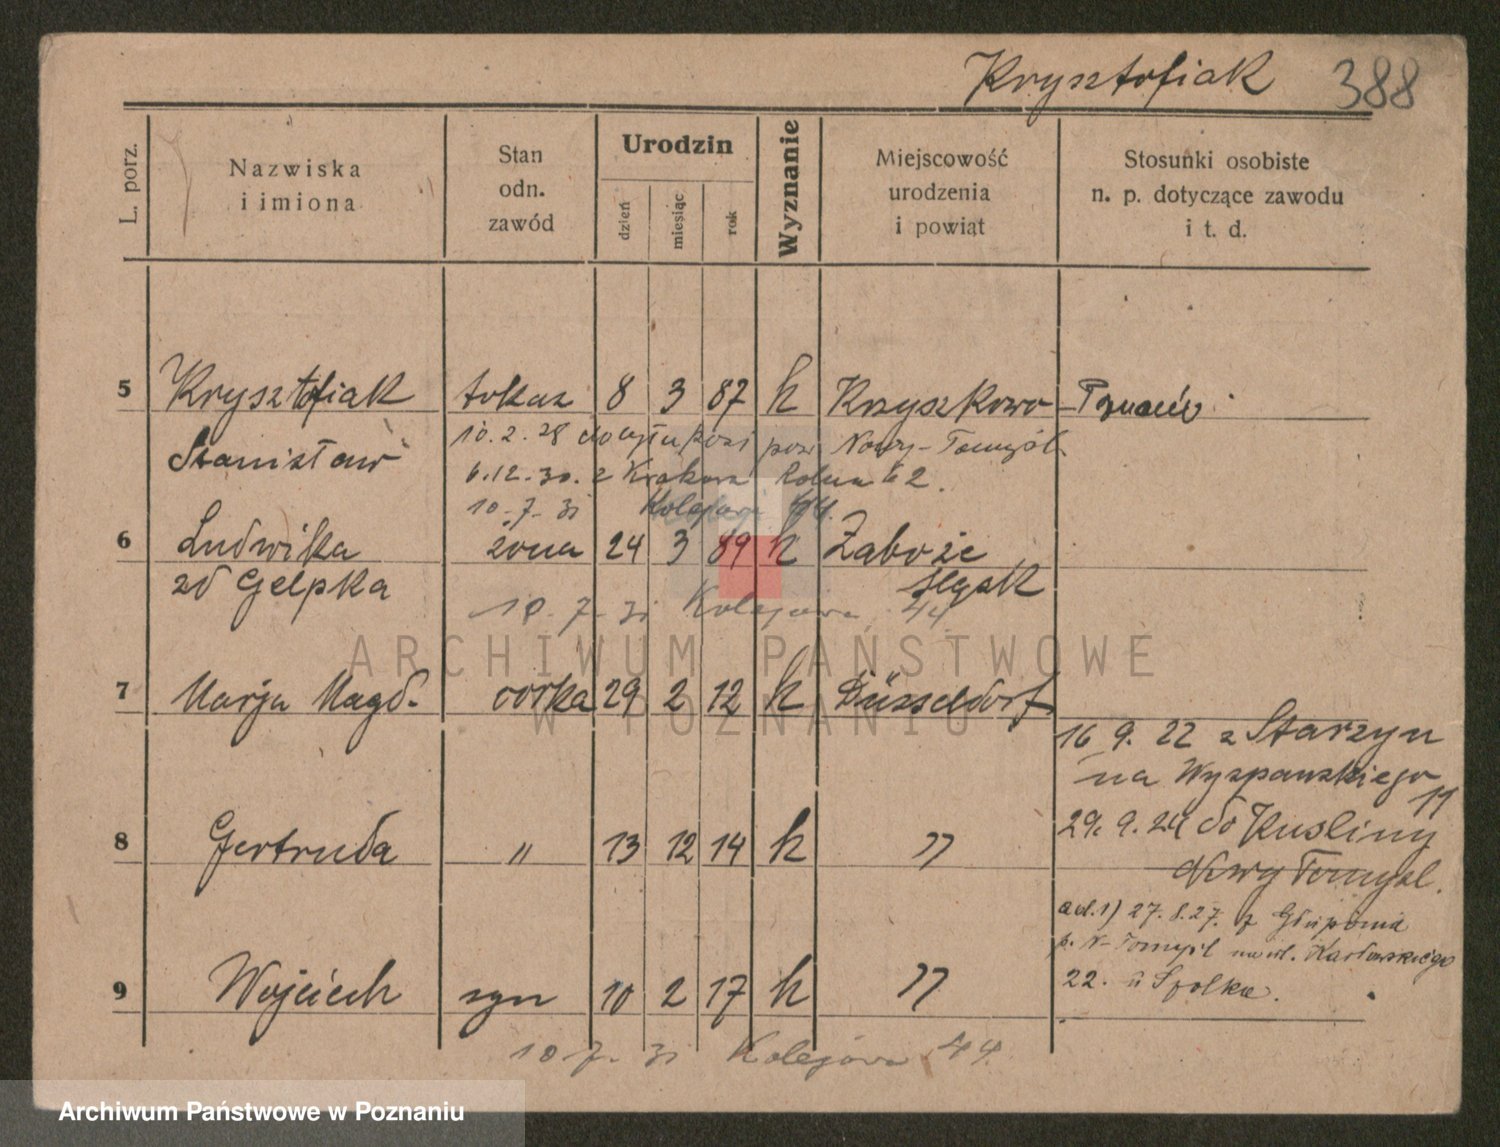 Krysztofiak 388
L. porz.
Nazwiska
i imiona
Stan
odn.
zawód
Urodzin
dzień
miesiąc
rok
Wyznanie
Miejscowość
urodzenia
i powiat
Stosunki osobiste
n. p. dotyczące zawodu
i t. d.
5 Krysztofiak tokaz 8 3 87 k Krzyszkowo Poznań
10.2.28 do pow Nowy-Tomyśl
Stanisław
6.12.30. z Krakowa Rolna 62.
10.-7-31 Kolejowa 44.
6 Ludwika żona 24 3 89 k Zaborze
zd Gelpka śląsk
10.7-31 Kolejowa 44
ARCHIWUM PAŃSTWOWE
W POZNANIU
7 Marja Magd. córka 29 2 12 k Düsseldorf
16 9. 22 z Starzyn
na Wyspanskiego
11
29. 9. 24 do Kusliny
8 Gertruda " 13 12 14 k "
Nowy Tomysl.
ad.1) 27.8.27. z Głuponia
p. N-Tomyśl na ul. Karłowskiego
22. u Spolka.
9 Wojciech syn 10 2 17 k "
10 7.-31 Kolejowa 44.
Archiwum Państwowe w Poznaniu